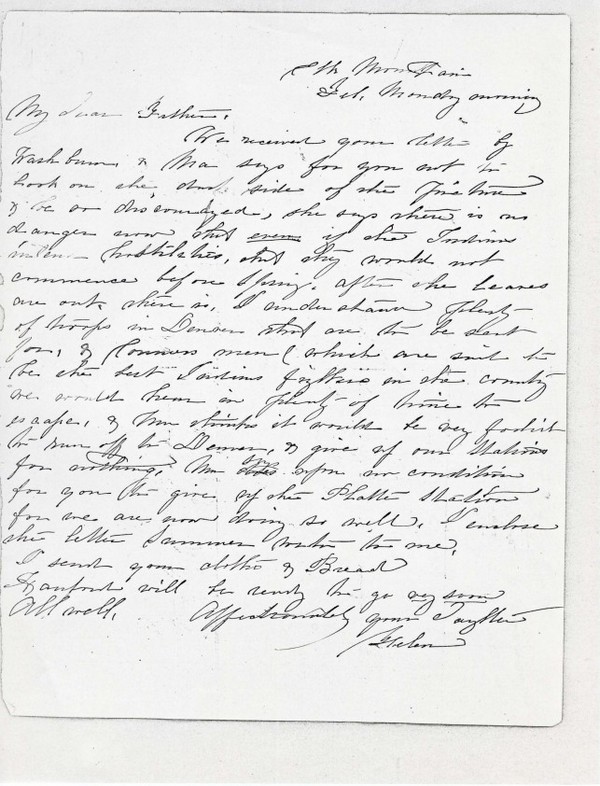 Elk Mountain
Feb. Monday morning
My dear Father,
We received your letter by
Washburn, & Ma says for you not to
look on the dark side of the picture
& be so discouraged, she says there is no
danger now that even if the Indians
intend hostilities, that they would not
commence before Spring. after the leaves
are out. there is, I understand plenty
of troops in Denver that are to be sent
for, & Connors men (which are said to
be the best Indians fighters in the country
we would hear in plenty of time to
escape, & Ma thinks it would be very foolish
to run off to Denver, & give up our Stations
for nothing. Ma says upon no condition
for you to give up the Platte Station
for we are now doing so well. I enclose
the letter Summer wrote to me.
I send your cloths & Bread
Hanford will be ready to go very soon
All well. Affectionately your Daughter
Helen